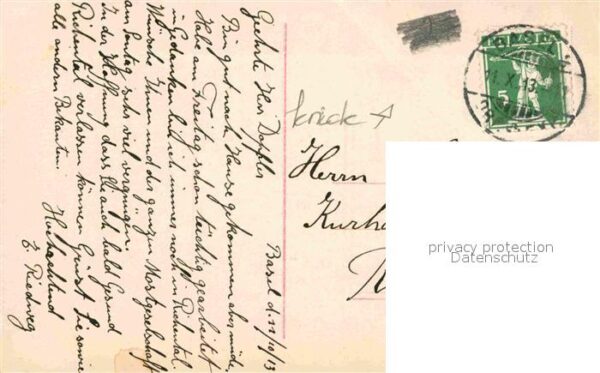 Basel d. 11/10/13
Geehrte Herr Doppler
Bin gut nach Hause gekommen aber müde
Habe am Freitag schon tüchtig gearbeitet
in Gedanken bin ich immer noch in Richental.
Wünsche Ihnen und der ganzen Mostgeselschaft
am Sontag sehr viel vergnügen.
In der Hoffnung dass Sie auch bald Gesund
Richental verlassen können Grüsst Sie sowie
alle andern Bekanten.
Hochachtend
E. Riedweg
knick
Herrn
Kurha
BASEL
11.X.13
5
privacy protection
Datenschutz